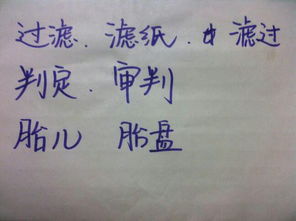 过滤.滤纸.滤过
判定.审判
胎儿 胎盘